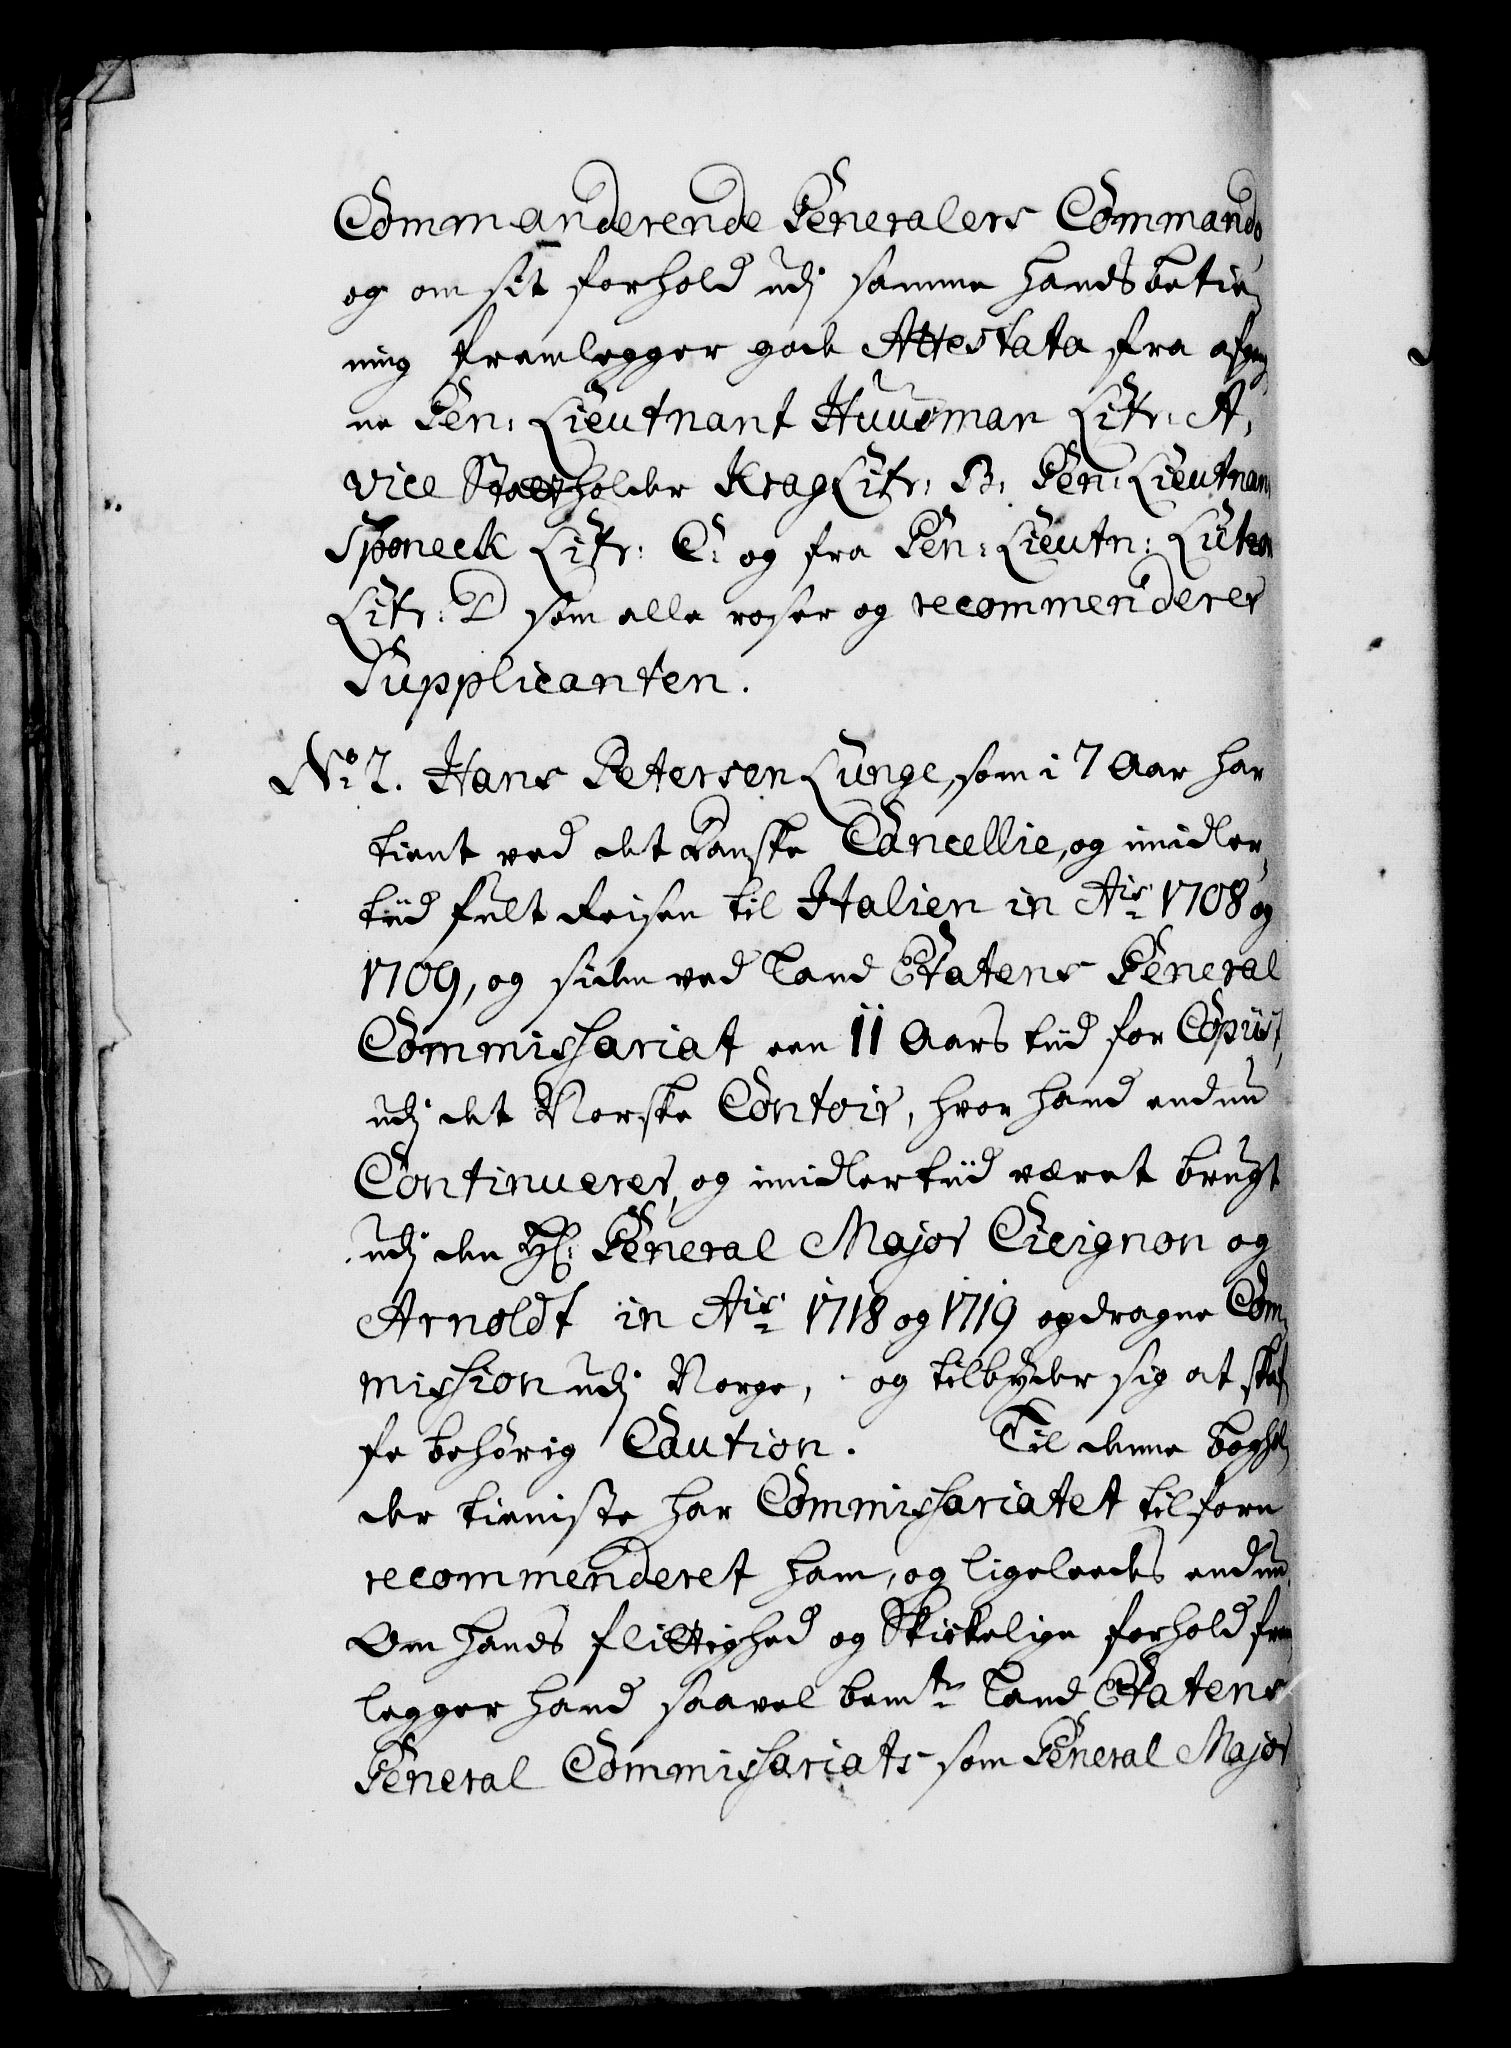 Commanderende Generalers Commando
og om sit forhold udj samme hands betie-
ning fremlegger gode Attestata fra afgag-
ne Gen: Lieutnant Huusman Litr: A,
vice Statholder Krag Litr: B, Gen: Lieutnan
Sponeck Litr: C: og fra Gen: Lieutn: Lützow
Litr: D som alle roser og recommenderer
Supplicanten.
No: 2. Hans Petersen Lunge, som i 7 Aar har
tient ved det danske Cancellie, og imidler-
tiid fult Reisen til Italien in Ais 1708 og
1709, og siden ved Land Etatens General
Commissariat een 11 Aars tiid for Copiist,
udj det Norske Contoir, hvor hand endnu
Continuerer, og imidlertiid været brugt
udj den Hr: General Major Cicignon og
Arnoldt in Ais 1718 og 1719 opdragne Com-
mission udj Norge, og tilbyder sig at skaf-
fe behörig Caution. Til denne boghol-
der tieniste har Commissariatet tilforn
recommenderet ham, og ligeleedes endnu.
Om hands flittighed og Skickelige forhold frem-
legger hand saavel bemte Land Etatens
General Commissariats som General Major